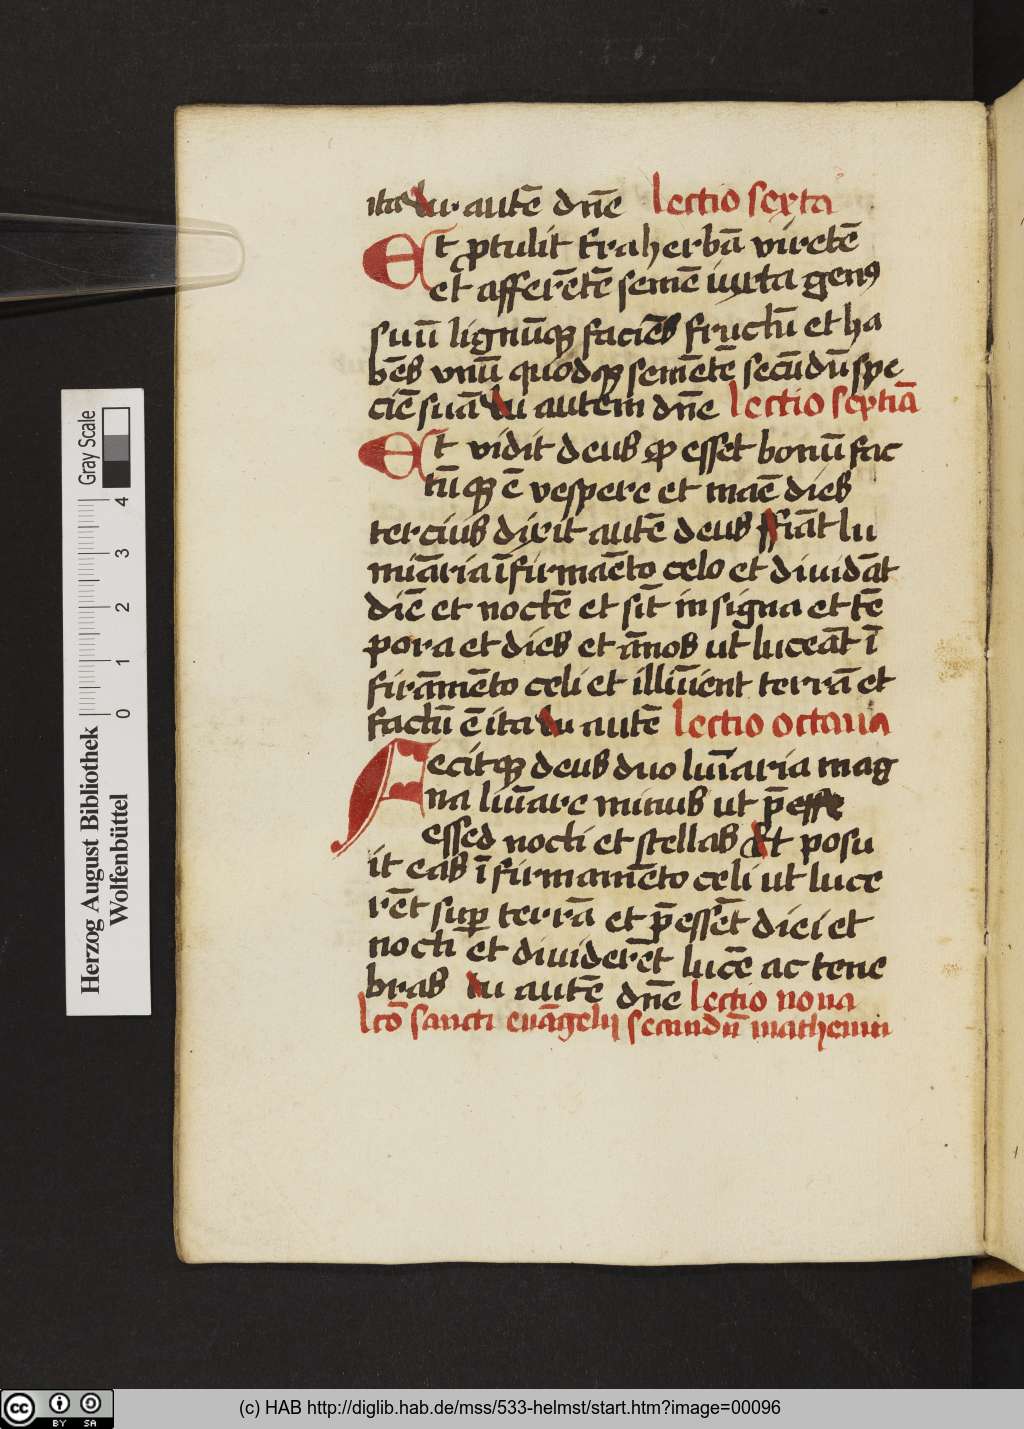 ita tu autē dn̄e lectio sexta
Et ꝓtulit t̄ra herbā viretē
et afferētē semē iuxta genꝰ
suū lignūqꝫ faciēs fructū et ha
bēs vnū quodqꝫ semētē secūdū spe
ciē suā tu autem dn̄e lectio septiā
Et vidit deus ꝙ esset bonū fac
tūqꝫ ē vespere et maē dies
tercius dixit autē deus ffiāt lu
mīaria ī firmaēto celo et diuidāt
diē et noctē et sīt in signa et tē
pora et dies et ānos ut luceāt ī
firāmēto celi et illūīent terrā et
factū ē ita tu autē lectio octaua
Fecitqꝫ deus duo luīaria mag
na luīare minus ut p̄esse
essed nocti et stellas Et posu
it eas ī firmamēto celi ut luce
rēt suꝑ terrā et p̄essēt diei et
nocti et diuiderēt lucē ac tene
bras tu autē dn̄e lectio nona
lc̄ō sancti euāgelij secundū matheum
Herzog August Bibliothek
Wolfenbüttel
0 1 2 3 4
Gray Scale
cc BY SA
(c) HAB http://diglib.hab.de/mss/533-helmst/start.htm?image=00096